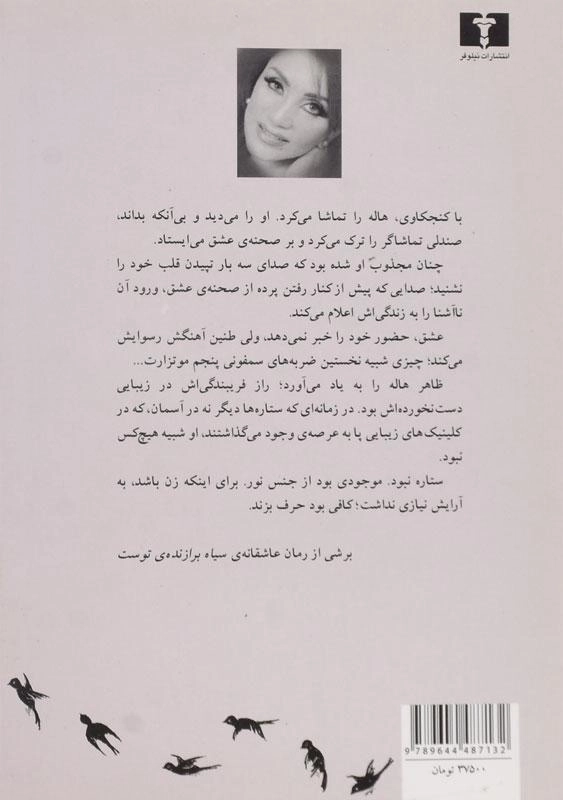 انتشارات نیلوفر
با کنجکاوی، هاله را تماشا می‌کرد. او را می‌دید و بی‌آنکه بداند،
صندلی تماشاگر را ترک می‌کرد و بر صحنه‌ی عشق می‌ایستاد.
چنان مجذوب او شده بود که صدای سه بار تپیدن قلب خود را
نشنید؛ صدایی که پیش از کنار رفتن پرده از صحنه‌ی عشق، ورود آن
ناآشنا را به زندگی‌اش اعلام می‌کند.
عشق، حضور خود را خبر نمی‌دهد، ولی طنین آهنگش رسوایش
می‌کند؛ چیزی شبیه نخستین ضربه‌های سمفونی پنجم موتزارت...
ظاهر هاله را به یاد می‌آورد؛ راز فریبندگی‌اش در زیبایی
دست‌نخورده‌اش بود. در زمانه‌ای که ستاره‌ها دیگر نه در آسمان، که در
کلینیک‌های زیبایی پا به عرصه‌ی وجود می‌گذاشتند، او شبیه هیچ‌کس
نبود.
ستاره نبود. موجودی بود از جنس نور. برای اینکه زن باشد، به
آرایش نیازی نداشت؛ کافی بود حرف بزند.
برشی از رمان عاشقانه‌ی سیاه برازنده‌ی توست
9 789644 487132
۳۷۵۰۰ تومان